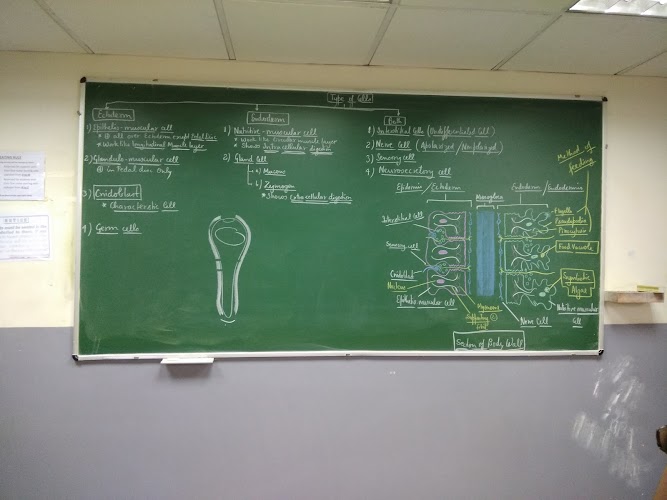 Type of Cells
Ectoderm
1) Epithelio-muscular cell
* @ all over Ectoderm except Pedal Disc
* Work like longitudinal Muscle layer
2) Glandulo-muscular cell
@ in Pedal disc Only
3) Cnidoblast
* Characteristic Cell
4) Germ cells
Endoderm
1) Nutritive-muscular cell
* Work like Circular muscle layer
* Shows Intracellular digestion
2) Gland Cell
a) Mucous
b) Zymogen
* Shows Extracellular digestion
Both
1) Interstitial Cells (Undifferentiated Cell)
2) Nerve Cell (Apolarized/Nonpolarized)
3) Sensory cell
4) Neurosecretory cell
Epidermis / Ectoderm
Mesogloea
Endoderm
Method of feeding
Interstitial Cell
Sensory cell
Cnidoblast
Nucleus
Epithelio muscular cell
Flagella
Pseudopodia
Pinocytosis
Food Vacuole
Symbiotic
Algae
Nutritive muscular
Cell
Nerve Cell
Section of Body Wall
NOTICE